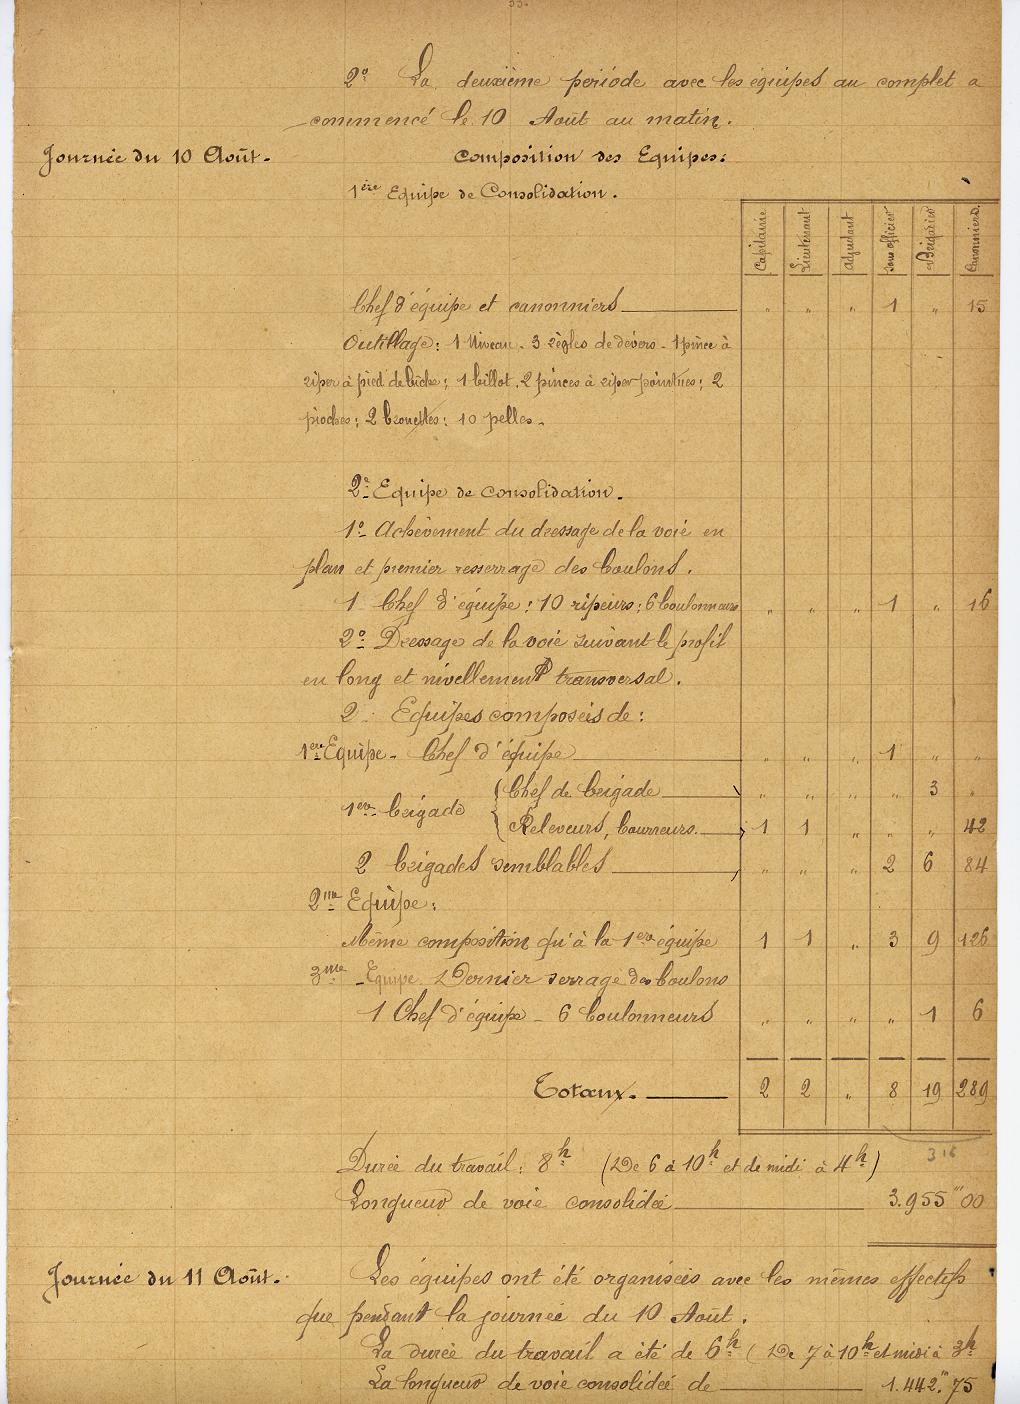 2º La deuxième période avec les équipes au complet a
commencé le 10 Août au matin.
Journée du 10 Août. Composition des Equipes:
1ère Equipe de Consolidation.
Capitaine Lieutenant Adjudant Sous officier Brigadier Canonniers
Chef d'équipe et canonniers " " " 1 " 15
Outillage: 1 Niveau. 3 règles de dévers. 1 pince à
riper à pied de biche; 1 billot. 2 pinces à riper pointues; 2
pioches; 2 brouettes; 10 pelles.
2e Equipe de consolidation.
1º Achèvement du dressage de la voie en
plan et premier resserrage des boulons.
1 Chef d'équipe: 10 ripeurs; 6 boulonneurs " " " 1 " 16
2º Dressage de la voie suivant le profil
en long et nivellement transversal.
2 Equipes composées de:
1ère Equipe. Chef d'équipe " " " 1 " "
1ère brigade { Chef de brigade " " " " 3 "
Releveurs, bourreurs. 1 1 " " " 42
2 brigades semblables " " " 2 6 84
2me Equipe:
Même composition qu'à la 1ère équipe 1 1 " 3 9 126
3me Equipe Dernier serrage des boulons
1 Chef d'équipe - 6 boulonneurs " " " " 1 6
Totaux. 2 2 " 8 19 289
316
Durée du travail: 8h (De 6 à 10h et de midi à 4h)
Longueur de voie consolidée 3.955m00
Journée du 11 Août. Les équipes ont été organisées avec les mêmes effectifs
que pendant la journée du 10 Août.
La durée du travail a été de 6h (De 7 à 10h et midi à 3h
La longueur de voie consolidée de 1.442m75